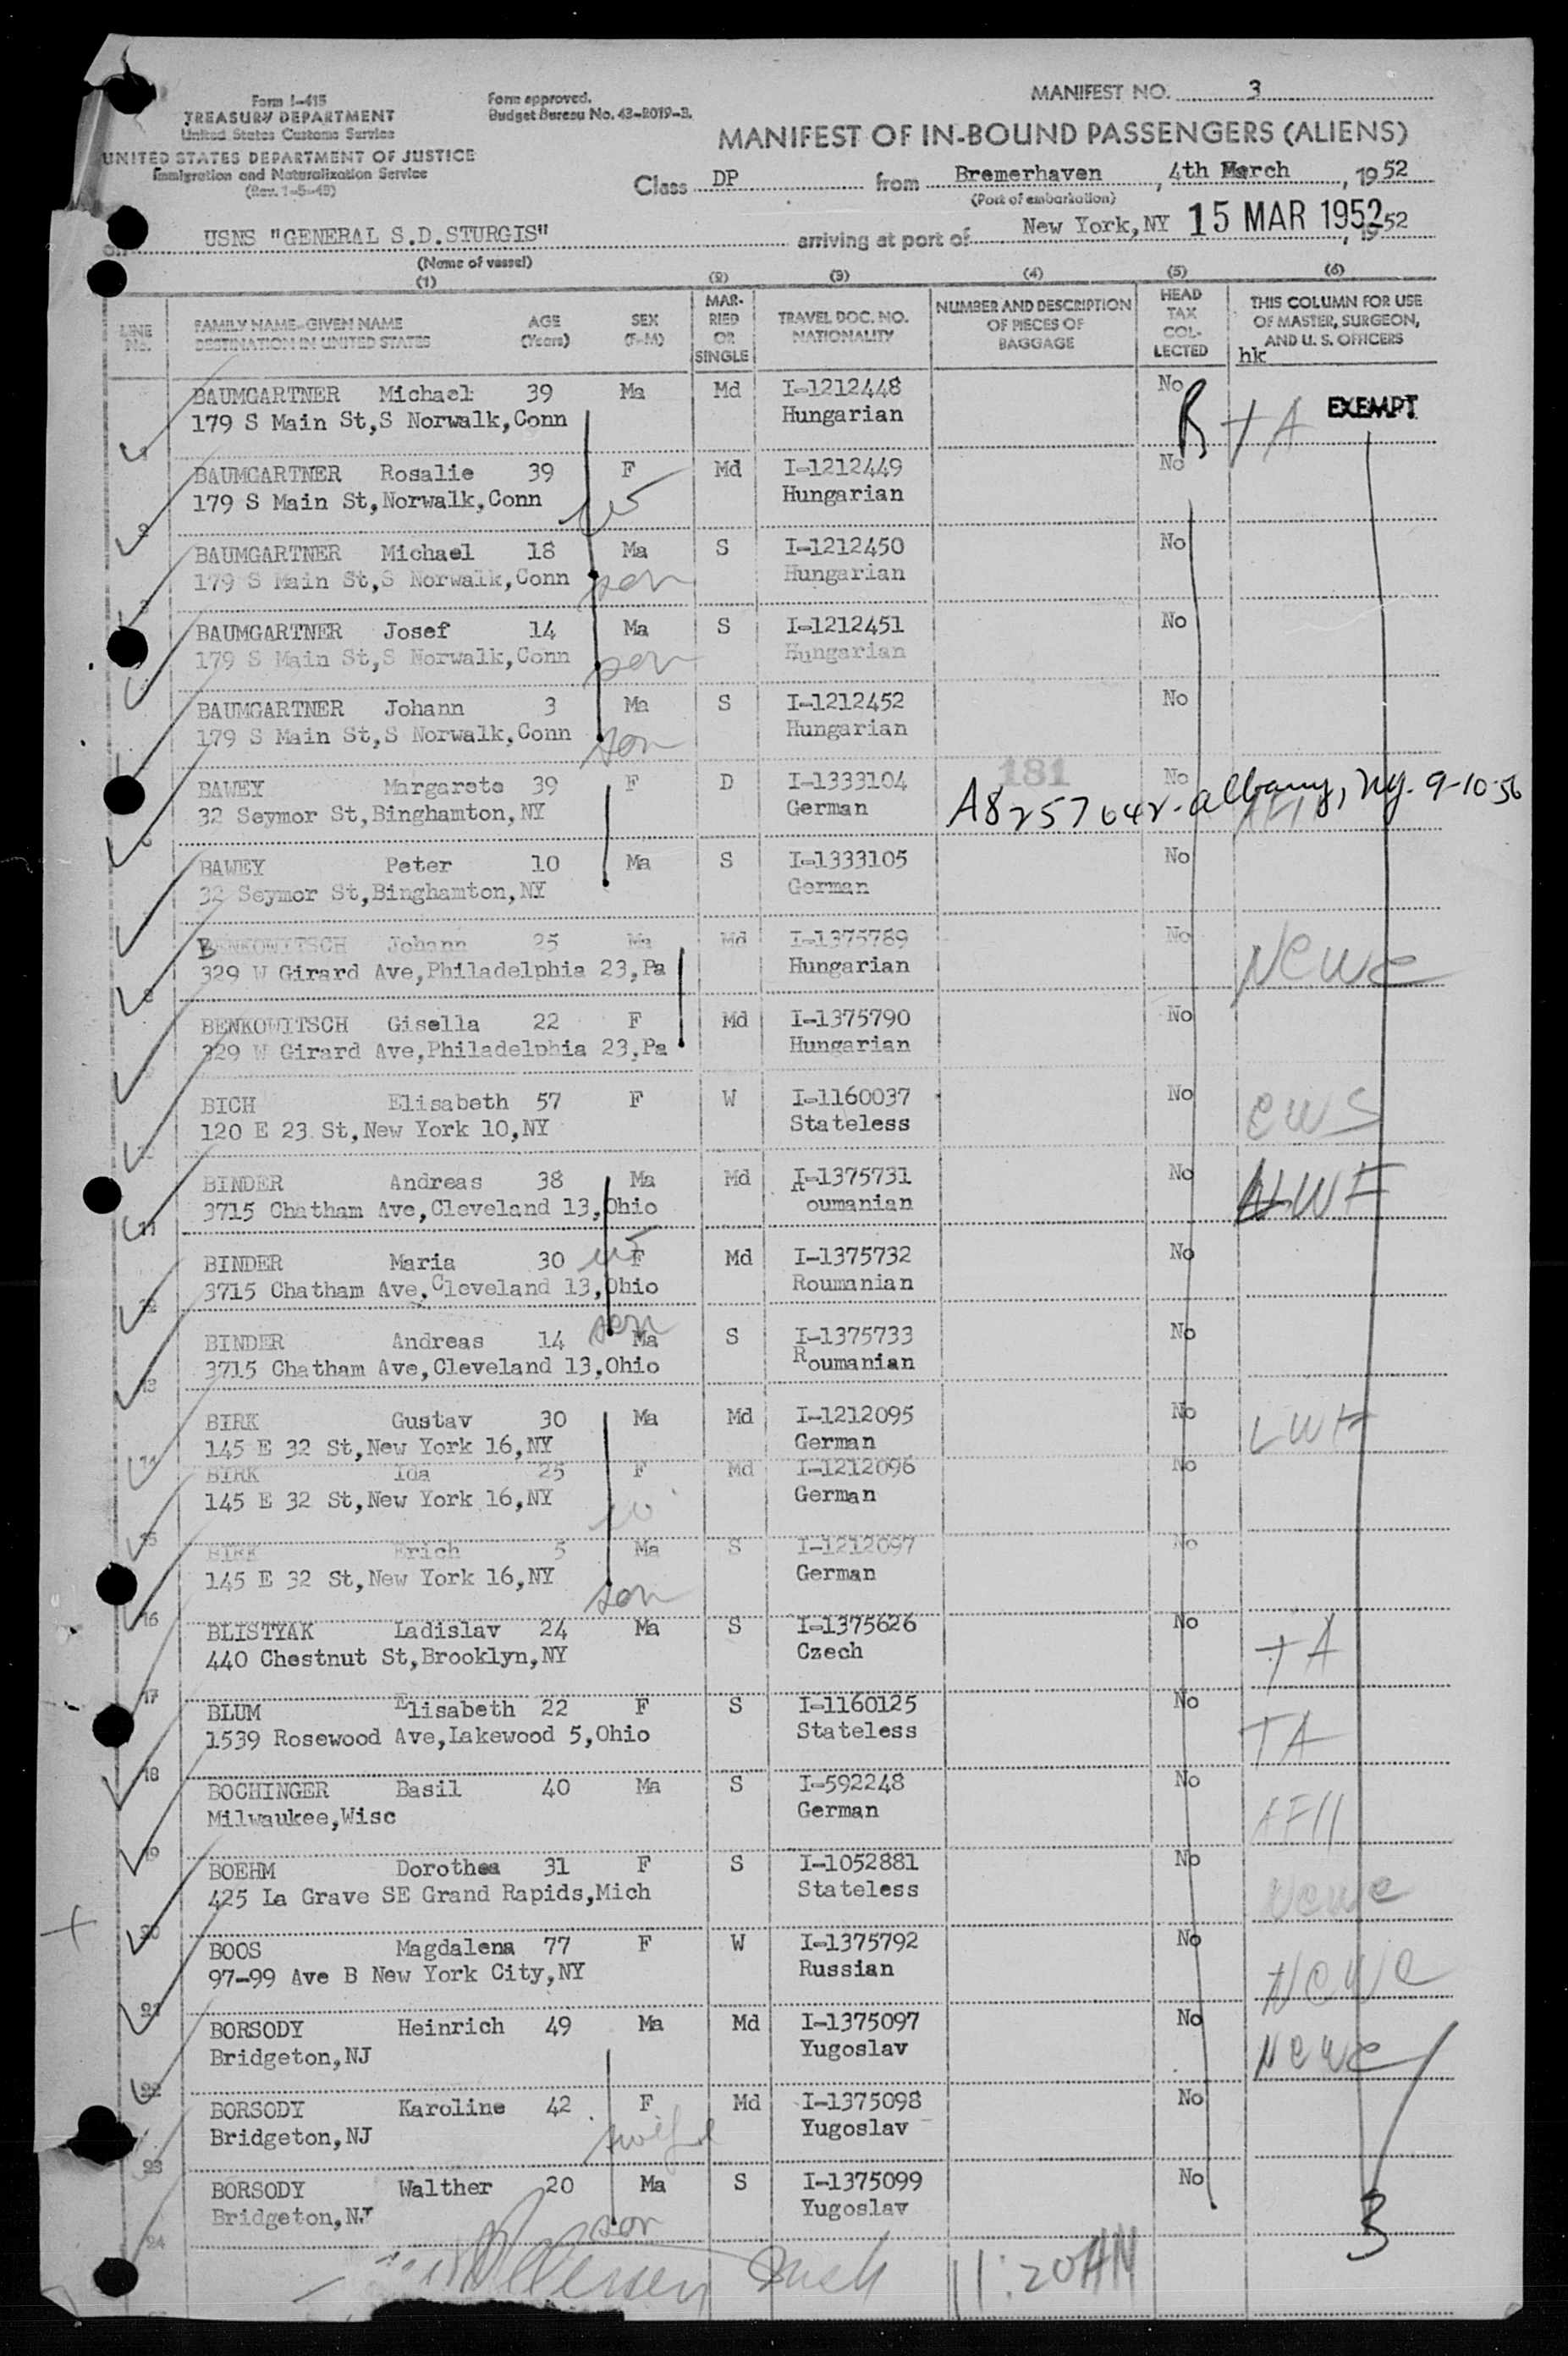 Form I-415
TREASURY DEPARTMENT
United States Customs Service
UNITED STATES DEPARTMENT OF JUSTICE
Immigration and Naturalization Service
(Rev. 1-5-49)
Form approved.
Budget Bureau No. 43-R019-3.
MANIFEST NO. 3
MANIFEST OF IN-BOUND PASSENGERS (ALIENS)
Class DP from Bremerhaven, 4th March, 1952
(Port of embarkation)
on USNS "GENERAL S.D.STURGIS" arriving at port of New York,NY 15 MAR 1952, 1952
(Name of vessel)
(1) (2) (3) (4) (5) (6)
LINE NO. FAMILY NAME-GIVEN NAME DESTINATION IN UNITED STATES AGE (Years) SEX (F-M) MARRIED OR SINGLE TRAVEL DOC. NO. NATIONALITY NUMBER AND DESCRIPTION OF PIECES OF BAGGAGE HEAD TAX COLLECTED THIS COLUMN FOR USE OF MASTER, SURGEON, AND U. S. OFFICERS
hk
BAUMGARTNER Michael 39 Ma Md I-1212448 No
179 S Main St,S Norwalk,Conn Hungarian TA EXEMPT
BAUMGARTNER Rosalie 39 F Md I-1212449 No
179 S Main St,Norwalk,Conn Hungarian
2
BAUMGARTNER Michael 18 Ma S I-1212450 No
179 S Main St,S Norwalk,Conn son Hungarian
3
BAUMGARTNER Josef 14 Ma S I-1212451 No
179 S Main St,S Norwalk,Conn son Hungarian
BAUMGARTNER Johann 3 Ma S I-1212452 No
179 S Main St,S Norwalk,Conn son Hungarian
181
BAWEY Margarete 39 F D I-1333104 No
32 Seymor St,Binghamton,NY German A8257642-Albany, NY. 9-10-56
6
BAWEY Peter 10 Ma S I-1333105 No
32 Seymor St,Binghamton,NY German
BENKOWITSCH Johann 25 Ma Md I-1375789 No
329 W Girard Ave,Philadelphia 23,Pa Hungarian NCWC
8
BENKOWITSCH Gisella 22 F Md I-1375790 No
329 W Girard Ave,Philadelphia 23,Pa Hungarian
BICH Elisabeth 57 F W I-1160037 No
120 E 23 St,New York 10,NY Stateless CWS
BINDER Andreas 38 Ma Md I-1375731 No
3715 Chatham Ave,Cleveland 13,Ohio Roumanian LWF
11
BINDER Maria 30 F Md I-1375732 No
3715 Chatham Ave,Cleveland 13,Ohio Roumanian
12
BINDER Andreas 14 son Ma S I-1375733 No
3715 Chatham Ave,Cleveland 13,Ohio Roumanian
13
BIRK Gustav 30 Ma Md I-1212095 No
145 E 32 St,New York 16,NY German LWF
14
BIRK Ida 25 F Md I-1212096 No
145 E 32 St,New York 16,NY German
15
BIRK Erich 5 Ma S I-1212097 No
145 E 32 St,New York 16,NY son German
16
BLISTYAK Ladislav 24 Ma S I-1375626 No
440 Chestnut St,Brooklyn,NY Czech TA
17
BLUM Elisabeth 22 F S I-1160125 No
1539 Rosewood Ave,Lakewood 5,Ohio Stateless TA
18
BOCHINGER Basil 40 Ma S I-592248 No
Milwaukee,Wisc German
19
BOEHM Dorothea 31 F S I-1052881 No
425 La Grave SE Grand Rapids,Mich Stateless NCWC
20
BOOS Magdalena 77 F W I-1375792 No
97-99 Ave B New York City,NY Russian NCWC
21
BORSODY Heinrich 49 Ma Md I-1375097 No
Bridgeton,NJ Yugoslav NCWC
22
BORSODY Karoline 42 F Md I-1375098 No
Bridgeton,NJ wife Yugoslav
23
BORSODY Walther 20 Ma S I-1375099 No
Bridgeton,NJ son Yugoslav 3
24
11:20AM